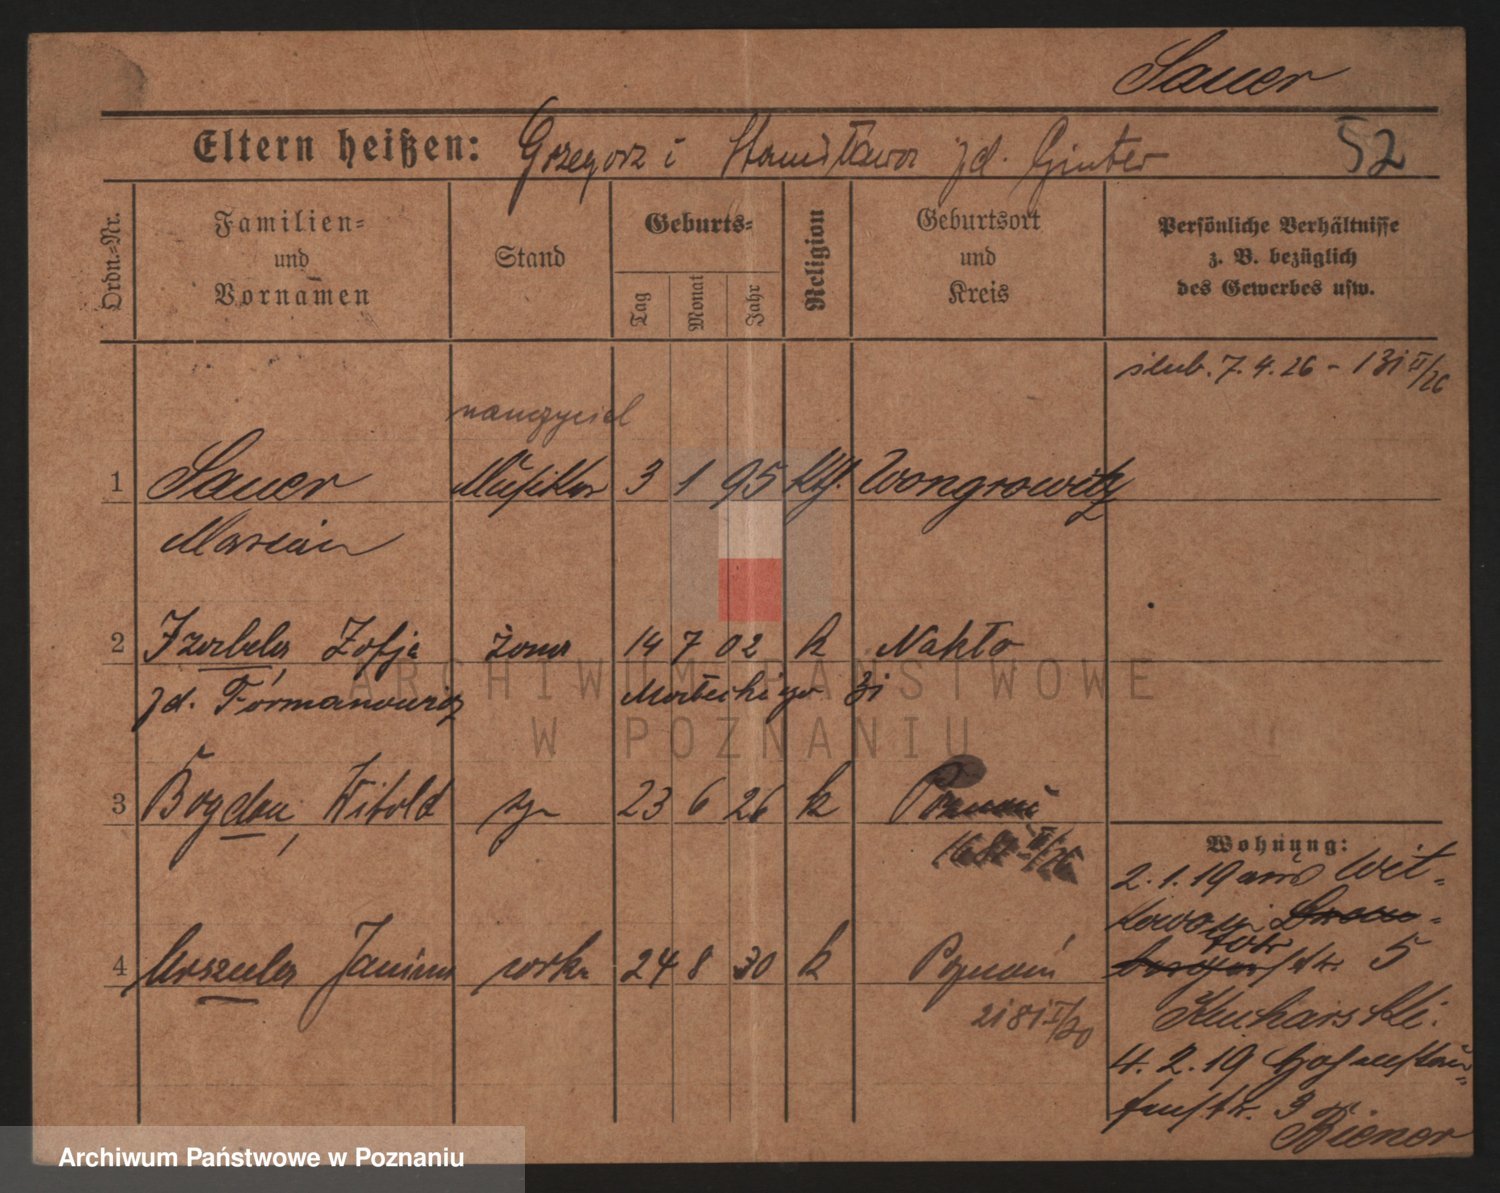 Sauer
Eltern heißen: Grzegorz i Stanisława zd. Ginter 52
Ordn.-Nr.
Familien-
und
Vornamen
Stand
Geburts-
Tag
Monat
Jahr
Religion
Geburtsort
und
Kreis
Persönliche Verhältnisse
z. B. bezüglich
des Gewerbes usw.
ślub. 7.4.26 - 131 II/26
nauczyciel
1 Sauer Musiker 3 1 95 kth. Wongrowitz
Marian
2 Izabela, Zofja żona 14 7 02 k Nakło
zd. Formanowicz 31
3 Bogdan, Witold syn 23 6 26 k Poznań
4 Urszula Janina córka 24 8 30 k Poznań
Wohnung:
2.1.19 aus Wit-
kowo
str. 5
Kucharski.
4.2.19 Hohenstau-
fenstr. 3
Biener
ARCHIWUM PAŃSTWOWE
W POZNANIU
Archiwum Państwowe w Poznaniu